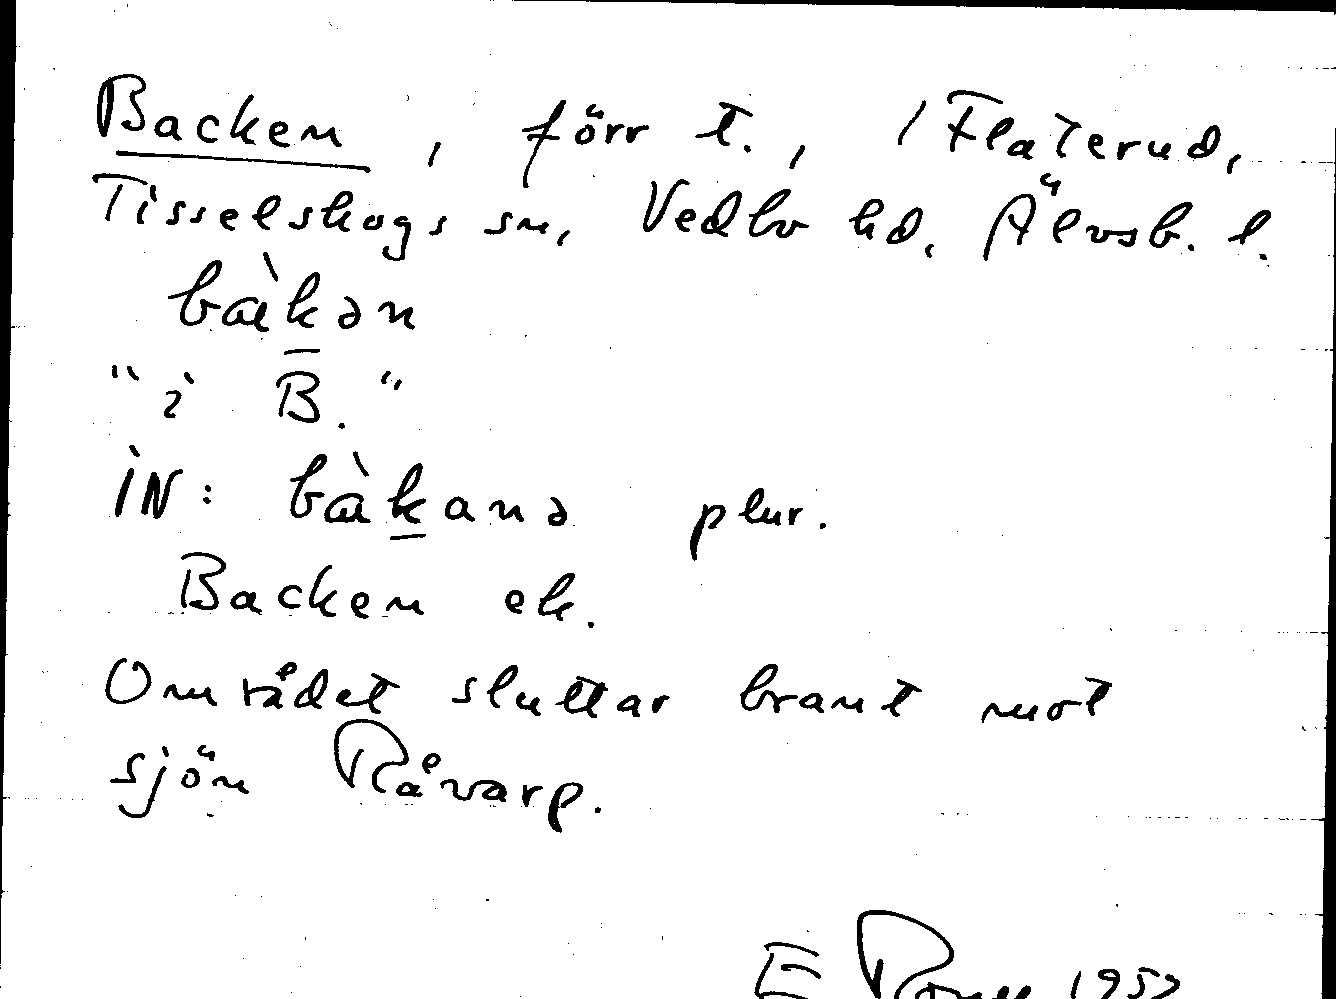 Backen, förr t., 1 Flaterud,
Tisselskogs sn, Vedbo hd, Älvsb. l.
bàkən
"i B."
IN: bàkanə plur.
Backen ek.
Området sluttar brant mot
sjön Råvarp.
E 195